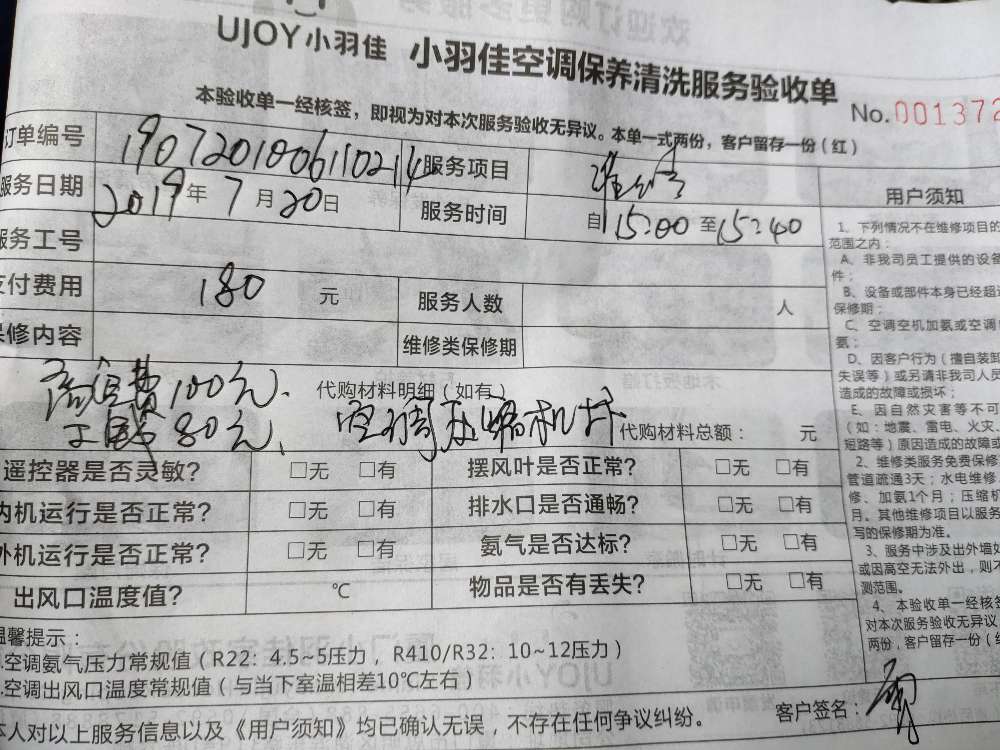 UJOY小羽佳 小羽佳空调保养清洗服务验收单
No.001372
本验收单一经核签，即视为对本次服务验收无异议。本单一式两份，客户留存一份（红）
订单编号 1907201006110214 服务项目 维修
服务日期 2019年7月20日 服务时间 自15:00至15:40
服务工号
支付费用 180元 服务人数 人
保修内容 维修类保修期
高空费100元. 代购材料明细（如有）
工费80元. 空调压缩机坏 代购材料总额： 元
遥控器是否灵敏? □无 □有 摆风叶是否正常? □无 □有
内机运行是否正常? □无 □有 排水口是否通畅? □无 □有
外机运行是否正常? □无 □有 氨气是否达标? □无 □有
出风口温度值? ℃ 物品是否有丢失? □无 □有
温馨提示：
.空调氨气压力常规值（R22：4.5~5压力，R410/R32：10~12压力）
.空调出风口温度常规值（与当下室温相差10℃左右）
本人对以上服务信息以及《用户须知》均已确认无误，不存在任何争议纠纷。 客户签名：
用户须知
1、下列情况不在维修项目的
范围之内：
A、非我司员工提供的设备
件；
B、设备或部件本身已经超过
保修期；
C、空调空机加氨或空调
氨；
D、因客户行为（擅自装卸
失误等）或另请非我司人员
造成的故障或损坏；
E、因自然灾害等不可
（如：地震、雷电、火灾、
短路等）原因造成的故障或
2、维修类服务免费保修
管道疏通3天；水电维修、
修、加氨1个月；压缩机
月。其他维修项目以服务
写的保修期为准。
3、服务中涉及出外墙如
或因高空无法外出，则不
测范围。
4、本验收单一经核签
对本次服务验收无异议
两份，客户留存一份（红